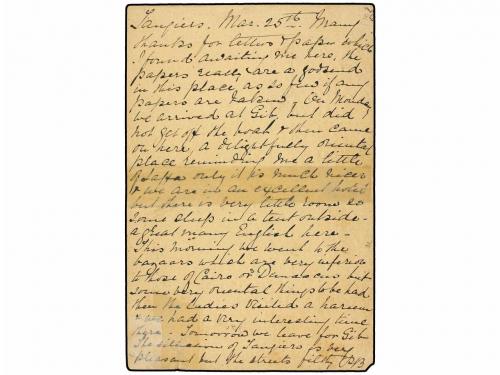 Tangiers. Mar. 25th. Many
thanks for letters & paper which
I found awaiting me here, the
papers really are a godsend
in this place, as so few if any
papers are taken. On Monday
we arrived at Gib, but did
not get off the boat & then came
on here, a delightfully oriental
place reminding me a little
of Jaffa only it is much nicer
& we are in an excellent hotel
but there is very little room so
some sleep in a tent outside -
a great many English here -
This morning we went to the
bazaars which are very inferior
to those of Cairo or Damascus but
some very oriental things to be had
then the ladies visited a harem
& we had a very interesting time
there. Tomorrow we leave for Gib
The situation of Tangiers is very
pleasant but the streets filthy